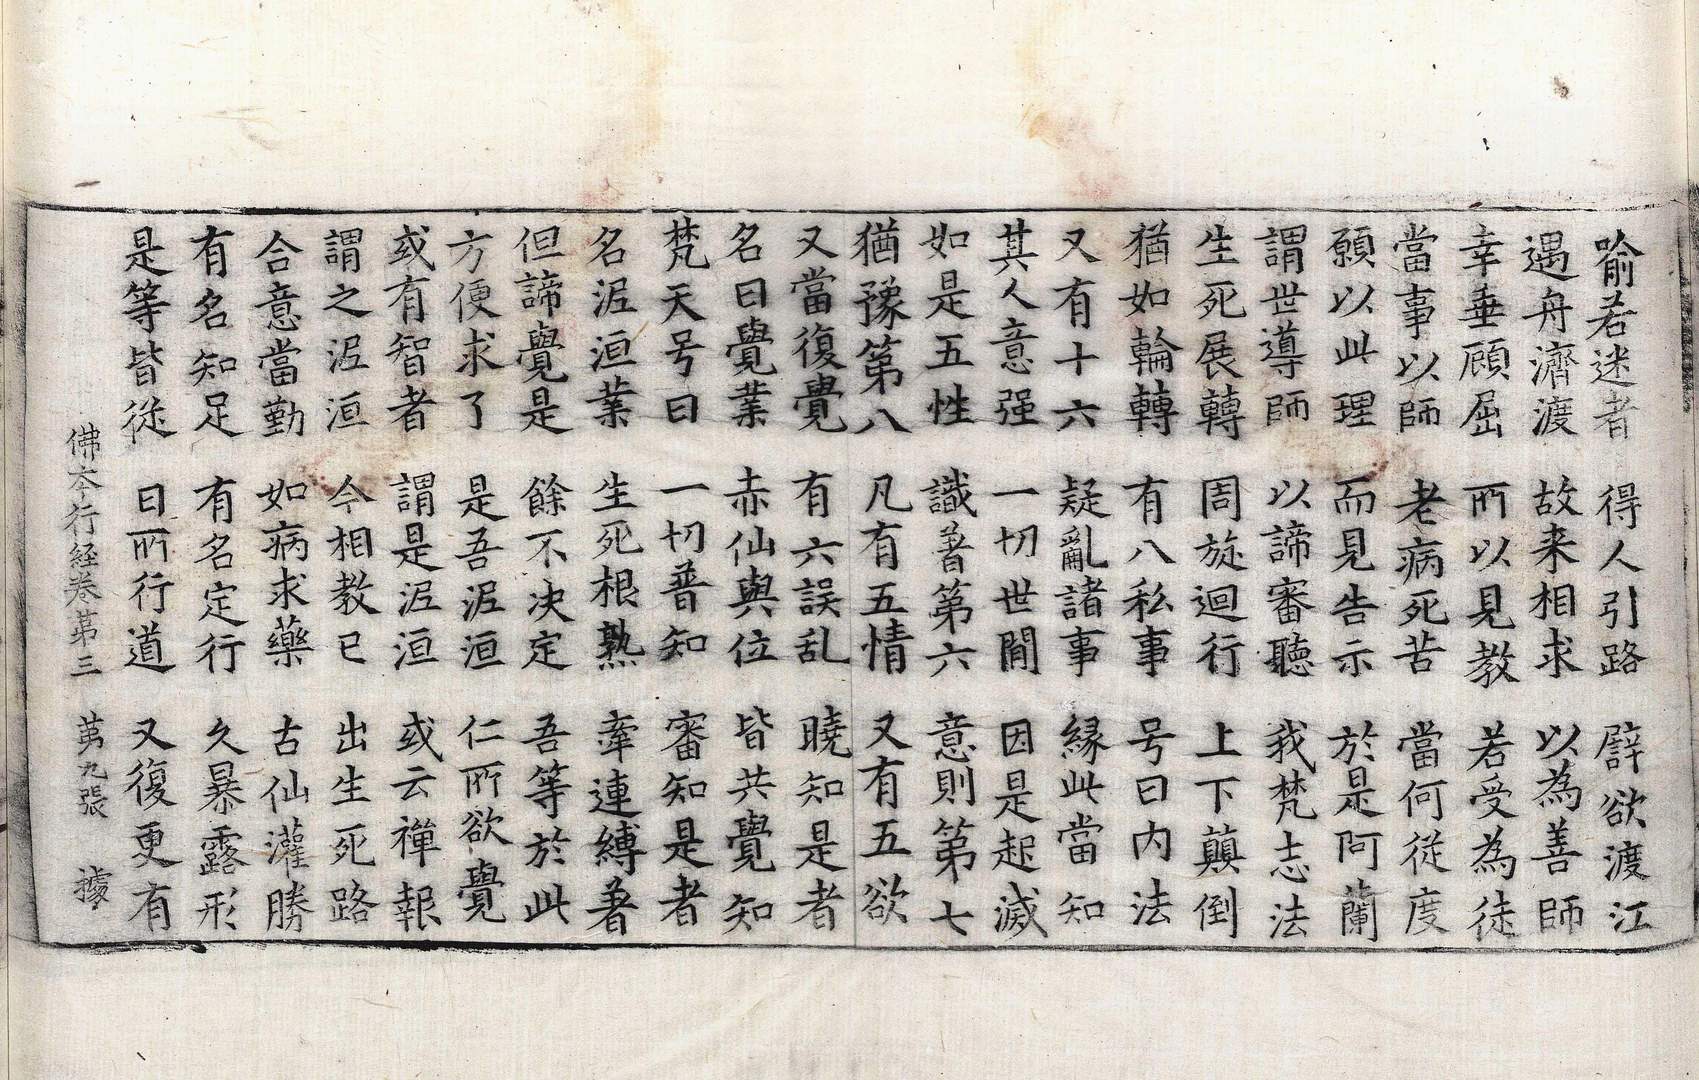 喻若迷者 得人引路 譬欲渡江
遇舟濟渡 故来相求 以為善師
幸垂顧屈 所以見教 若受為徒
當事以師 老病死苦 當何從度
願以此理 而見告示 於是阿蘭
謂世導師 以諦審聽 我梵志法
生死展轉 周旋迴行 上下顛倒
猶如輪轉 有八私事 号曰内法
又有十六 疑亂諸事 縁此當知
其人意强 一切世間 因是起滅
如是五性 識著第六 意則第七
猶豫第八 凡有五情 又有五欲
又當復覺 有六誤乱 曉知是者
名曰覺業 赤仙與位 皆共覺知
梵天号曰 一切普知 審知是者
名泥洹業 生死根熟 牽連縛著
但諦覺是 餘不决定 吾等於此
方便求了 是吾泥洹 仁所欲覺
或有智者 謂是泥洹 或云禪報
謂之泥洹 今相教已 出生死路
合意當勤 如病求藥 古仙灌勝
有名知足 有名定行 久暴露形
是等皆從 曰所行道 又復更有
佛本行経卷第三 第九張 據